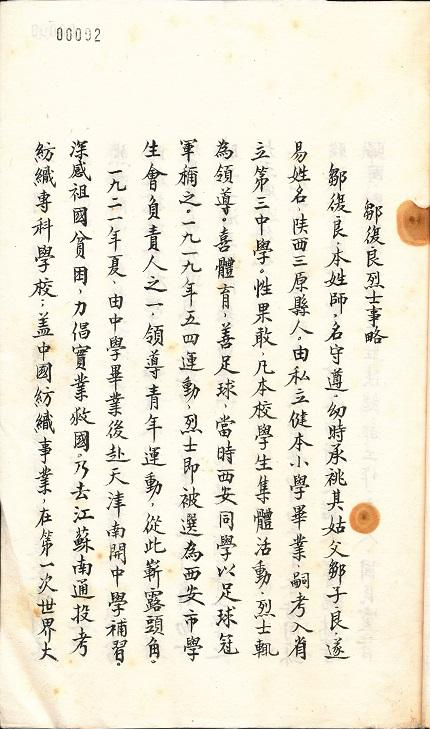 00002
鄒復良烈士事略
鄒復良，本姓師，名守遵，幼時承祧其姑父鄒子良，遂
易姓名，陝西三原縣人。由私立健本小學畢業，嗣考入省
立第三中學。性果敢，凡本校學生集體活動，烈士輒
為領導。喜體育，善足球，當時西安同學以足球冠
軍稱之。一九一九年五四運動，烈士即被選為西安市學
生會負責人之一，領導青年運動，從此嶄露頭角。
一九二一年夏，由中學畢業後赴天津南開中學補習。
深感祖國貧困，力倡實業救國。乃去江蘇南通投考
紡織專科學校；蓋中國紡織事業，在第一次世界大